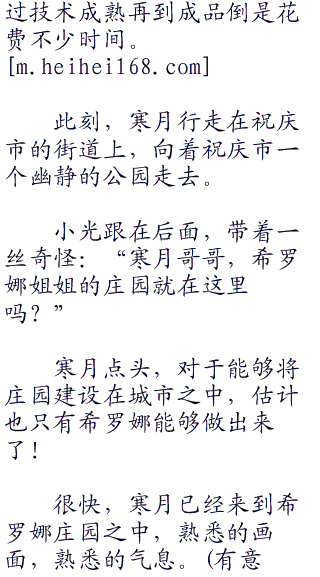 过技术成熟再到成品倒是花
费不少时间。
[m.heihei168.com]
此刻，寒月行走在祝庆
市的街道上，向着祝庆市一
个幽静的公园走去。
小光跟在后面，带着一
丝奇怪：“寒月哥哥，希罗
娜姐姐的庄园就在这里
吗？”
寒月点头，对于能够将
庄园建设在城市之中，估计
也只有希罗娜能够做出来
了!
很快，寒月已经来到希
罗娜庄园之中，熟悉的画
面，熟悉的气息。(有意